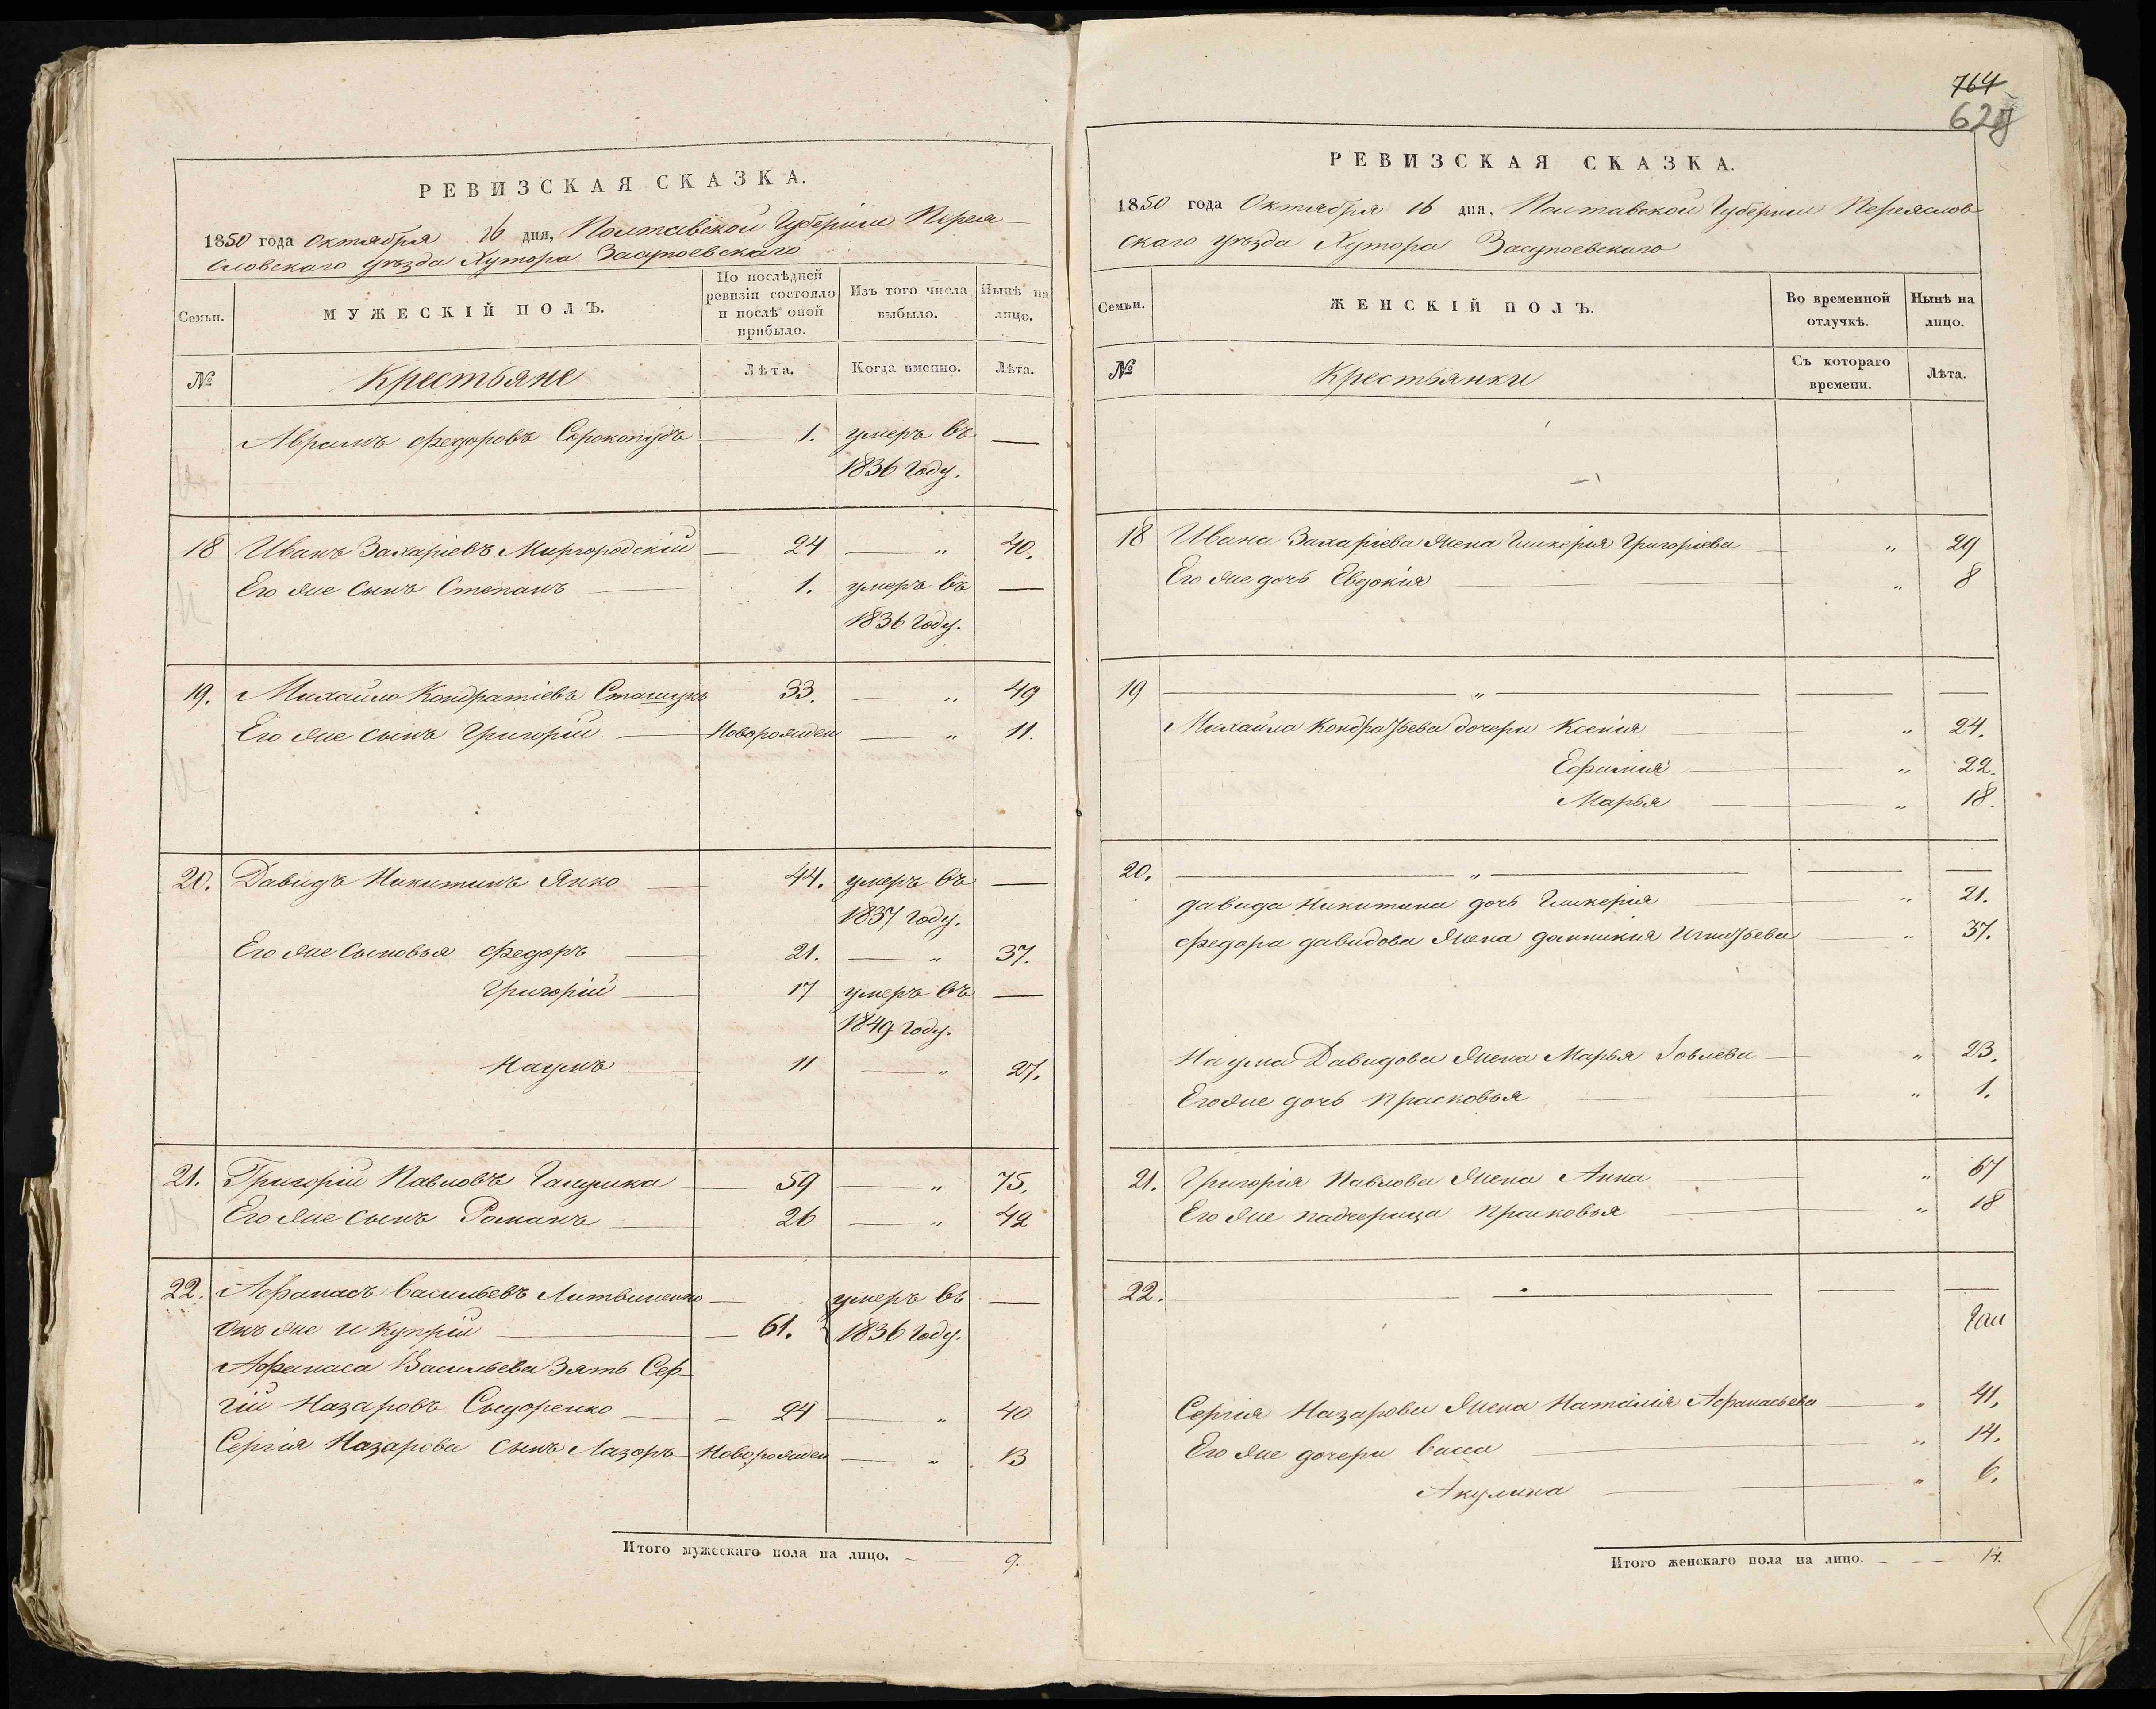 РЕВИЗСКАЯ СКАЗКА.
1850 года Октября 16 дня, Полтавской Губерніи Перея-
словскаго уѣзда Хутора Засупоевскаго
Семьи.
МУЖЕСКІЙ ПОЛЪ.
По послѣдней ревизіи состояло и послѣ оной прибыло.
Изъ того числа выбыло.
Нынѣ на лицо.
№ Крестьяне Лѣта. Когда именно. Лѣта.
Аврамъ Федоровъ Сорокопудъ 1. умеръ въ —
1836 году.
18 Иванъ Захаріевъ Миргородскій — 24 — „ 40.
Его же сынъ Степанъ — 1. умеръ въ —
1836 году.
19. Михайло Кондратіевъ 33. — „ 49
Его же сынъ Григорій — Новорожден — „ 11.
20. Давидъ Никитинъ Янко — 44. умеръ въ —
1837 году.
Его же сыновья Федоръ — 21. — „ 37.
Григорій — 17 умеръ въ —
1849 году.
Наумъ — 11 — „ 27.
21. Григорій Павловъ Галушка — 59 — „ 75.
Его же сынъ Романъ — 26 — „ 42
22. Афанасъ Васильевъ Литвиненко — умеръ въ —
Онъ же и Купрій — 61. 1836 году.
Афанаса Васильева зять Сер-
гій Назаровъ Сыдоренко — 24 — „ 40
Сергія Назарова сынъ Лазоръ — Новорожден — „ 13
Итого мужескаго пола на лицо. — 9.
764
РЕВИЗСКАЯ СКАЗКА.
1850 года Октября 16 дня, Полтавской Губерніи Переяслов-
скаго уѣзда Хутора Засупоевскаго
Семьи.
ЖЕНСКІЙ ПОЛЪ.
Во временной отлучкѣ.
Нынѣ на лицо.
№ Крестьянки Съ котораго времени. Лѣта.
18 Ивана Захаріева жена Гликерія Григоріева — „ 29
Его же дочь Евдокія — „ 8
19 — „ — — —
Михайла Кондратьева дочери Ксенія — „ 24.
Ефимия — „ 22.
Марья — „ 18.
20. — „ — — —
Давида Никитина дочь Гликерія — „ 21.
Федора Давидова жена Домникия Игнатьева — „ 37.
Наума Давидова жена Марья Іовлева — „ 23.
Его же дочь Прасковья — „ 1.
21. Григорія Павлова жена Анна — „ 67
Его же падчерица Прасковья — „ 18
22. — „ — — —
Сергія Назарова жена Наталия Афанасьева — „ 41.
Его же дочери Васса — „ 14.
Акулина — „ 6.
Итого женскаго пола на лицо. — 14.